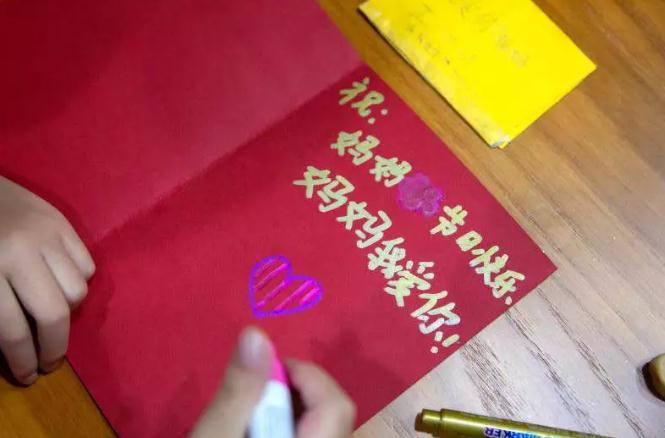 祝:
妈妈节日快乐.
妈妈我爱你!!
MARKER